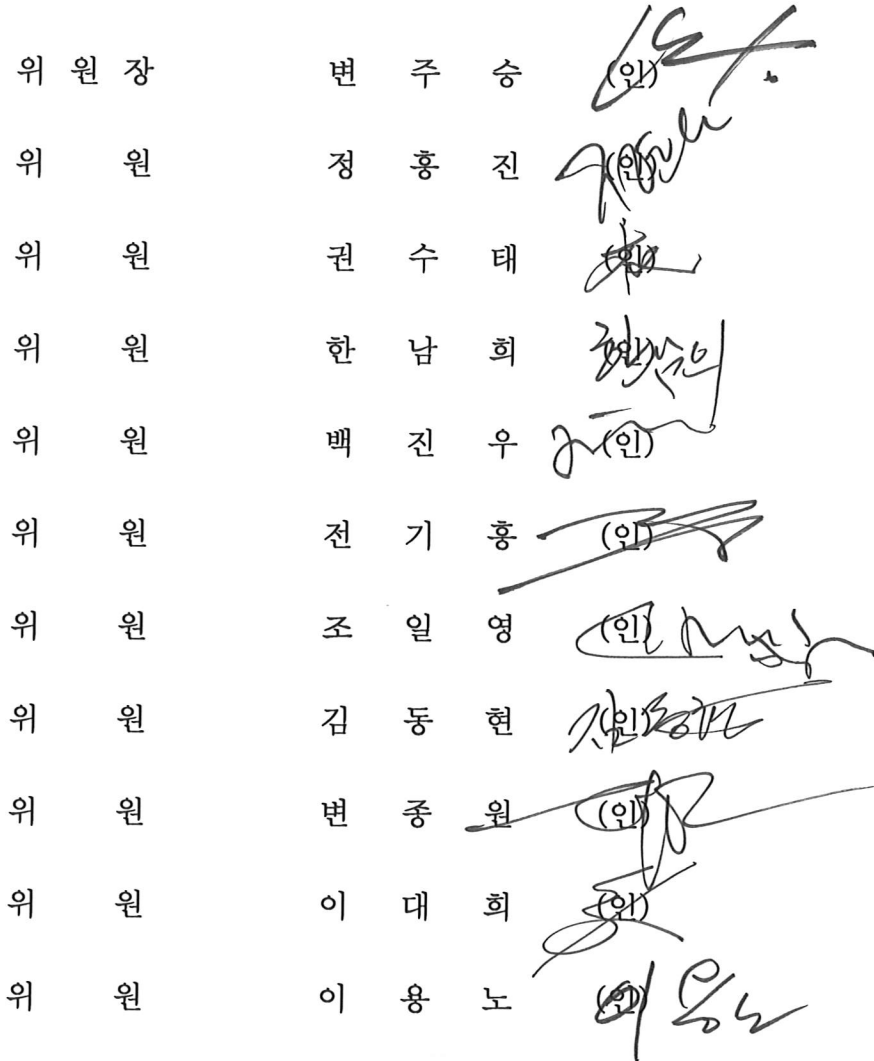 위 원 장 변 주 승 (인)
위 원 정 홍 진 (인)
위 원 권 수 태 (인)
위 원 한 남 희 (인)
위 원 백 진 우 (인)
위 원 전 기 홍 (인)
위 원 조 일 영 (인)
위 원 김 동 현 (인) 김동현
위 원 변 종 원 (인)
위 원 이 대 희 (인)
위 원 이 용 노 (인) 이용노